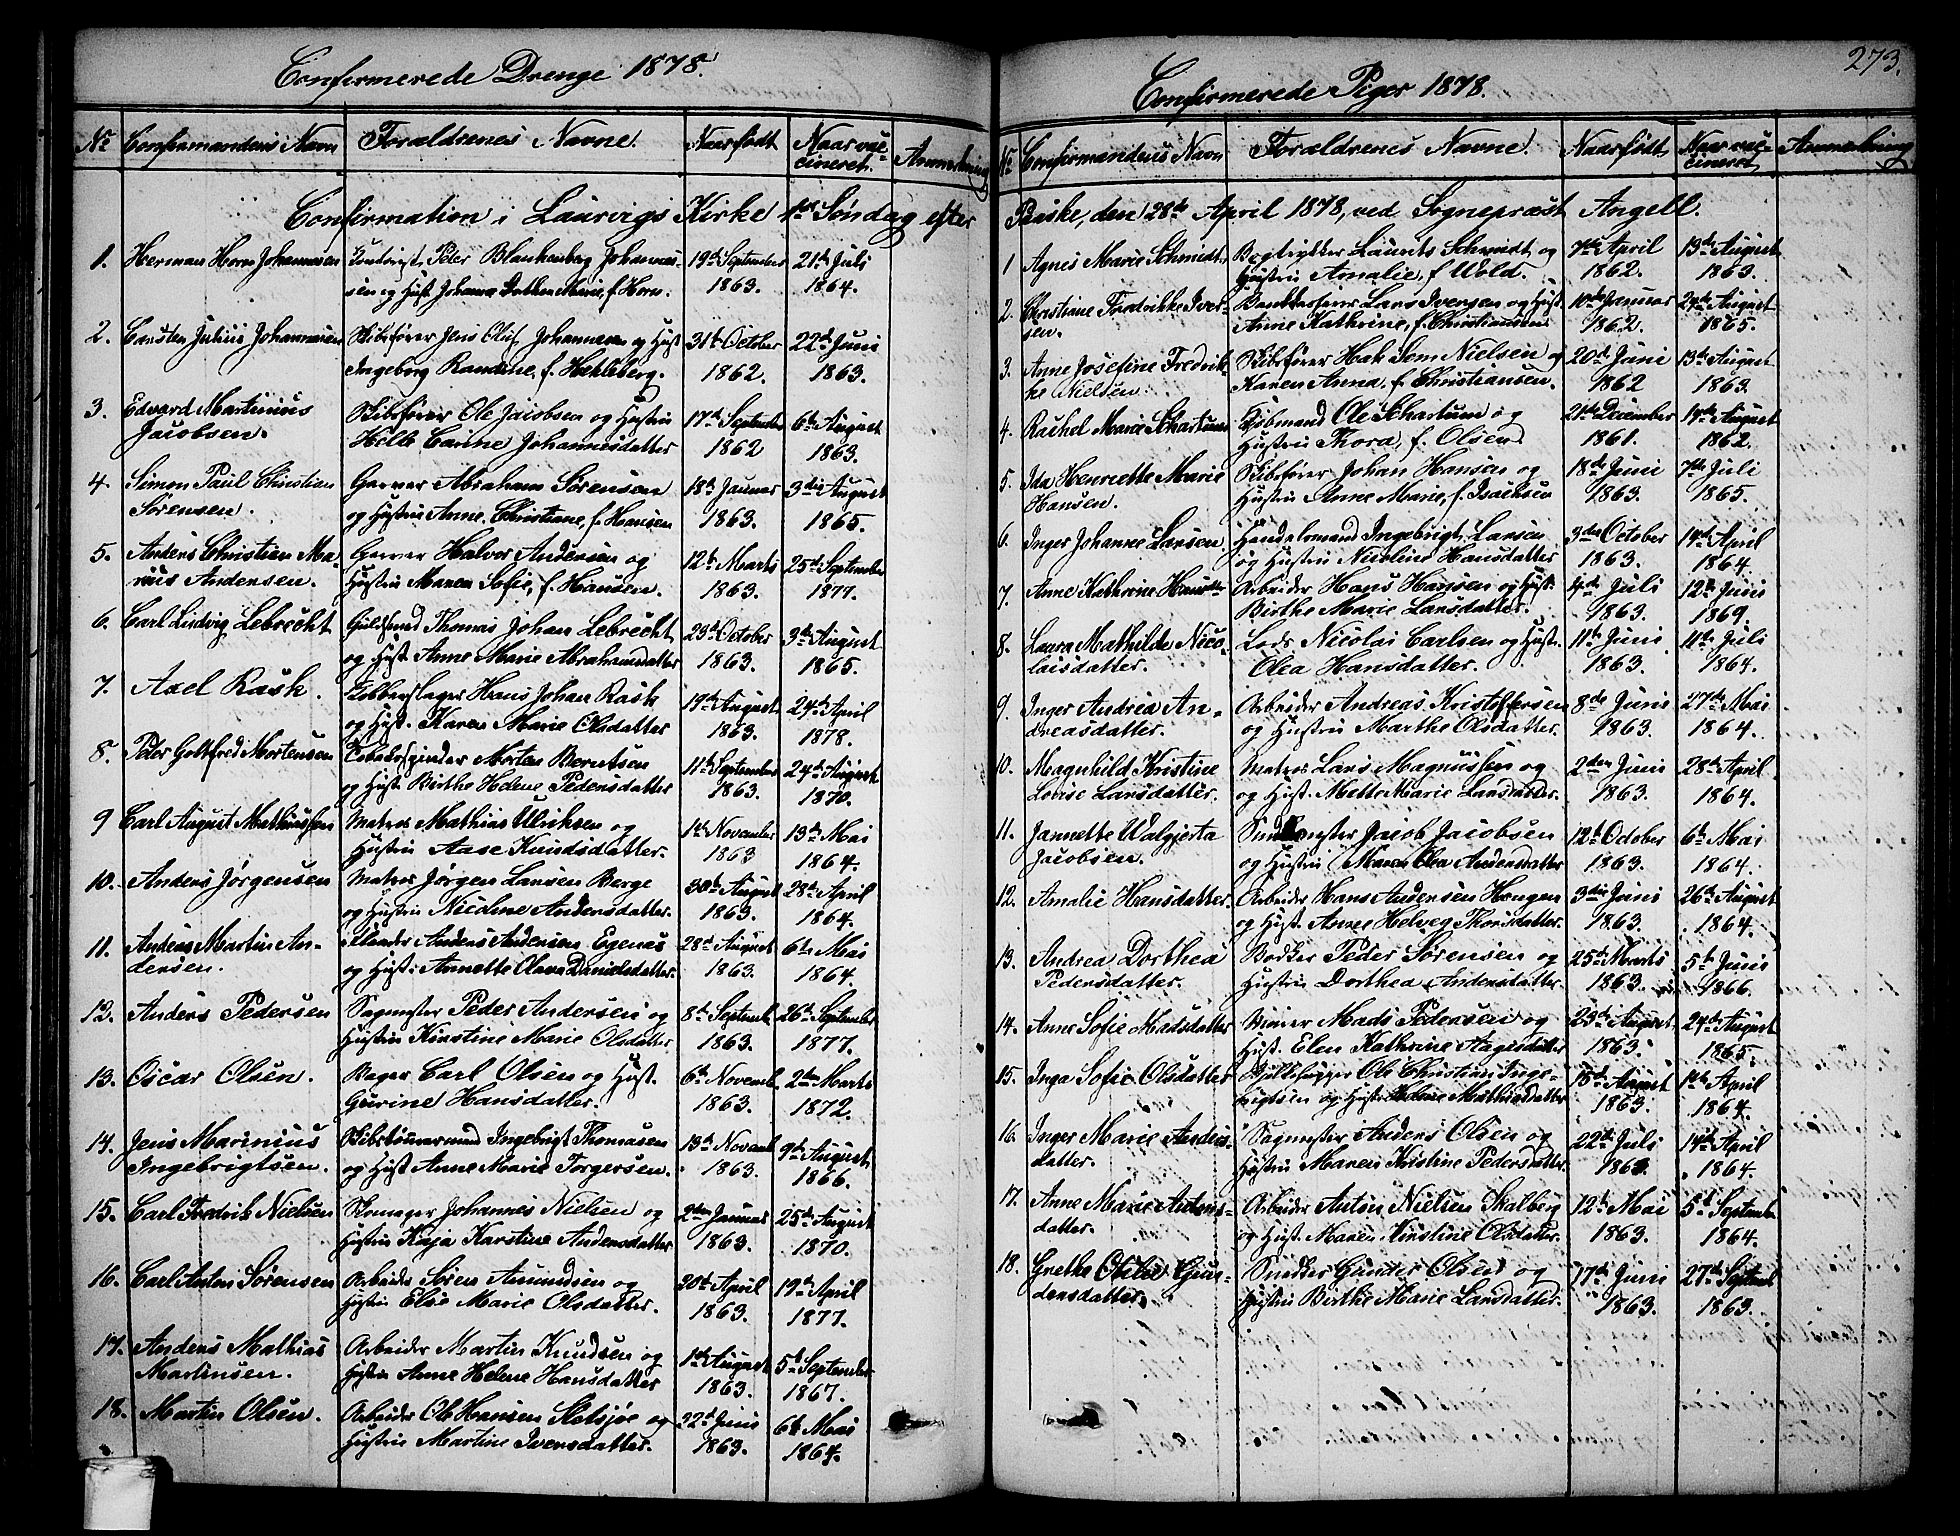 Confirmerede Drenge 1878.
No Confirmandens Navn Forældrenes Navne. Naar født Naar vaccineret. Anmerkning
Confirmation i Laurvigs Kirke 1ste Søndag efter
1. Herman Horn Johannesen Peder Blankenberg Johannes- 19de September 21de Juli
sen og Hust. Johanna Dorthea Marie, f. Horn. 1863. 1864.
2. Carsten Julius Johannesen Skibsfører Jens Oluf Johannesen og Hust 31te October 22de Juni
Ingeborg Randine, f. Hekleberg. 1862. 1863.
3. Edvard Martinius Skibsfører Ole Jacobsen og Hustru 17de September 6te August
Jacobsen. Helle Carine Johannesdatter 1862 1863.
4. Simon Paul Christian Garver Abraham Sørensen 18de Januar 3die August
Sørensen. og Hustru Anne Christiane, f. Hansen 1863. 1865.
5. Anders Christian Ma- Garver Halvor Andersen og 12te Marts 25de September
rius Andersen. Hustru Maren Sofie, f. Hansen. 1863. 1877.
6. Carl Ludvig Lebrecht Guldsmed Thomas Johan Lebrecht 23de October 3die August
og Hust. Anne Marie Abrahamsdatter 1863. 1865.
7. Axel Rask. Kobberslager Hans Johan Rask 19de August 24de April
og Hust. Karen Marie Olsdatter 1863. 1878.
8. Peter Gottfred Mortensen Tobakspinder Morten Berntsen 11te September 24de August
og Hust. Birthe Helene Pedersdatter 1863. 1870.
9 Carl August Mathiassen Matros Mathias Ulriksen og 1ste November 13de Mai
Hustru Aase Knudsdatter. 1863 1864.
10. Anders Jørgensen Matros Jørgen Larsen Berge 30te August 28de April
og Hustru Nicoline Andersdatter. 1863. 1864.
11. Anders Martin An- Anders Andersen Egenæs 28de August 6te Mai
dersen. og Hust: Annette Olava Danielsdatter. 1863. 1864.
12. Anders Pedersen Sagmester Peder Andersen og 8de Septemb. 26de September
Hustru Kirstine Marie Olsdatter. 1863. 1877.
13. Oscar Olsen. Bager Carl Olsen og Hust. 6te Novemb. 2den Marts
Gurine Hansdatter. 1863. 1872.
14. Jens Marinius Skibstømmermand Ingebrigt Thomasen 13de Novemb. 9de August
Ingebrigtsen. og Hust Anne Marie Torgersen. 1863. 1866.
15. Carl Fredrik Nielsen Skomager Johannes Nielsen og 2den Januar 25de August
Hustru Kaja Karstine Andersdatter 1863. 1870.
16. Carl Anton Sørensen Arbeider Søren Amundsen og 20de April 19de April
Hustru Else Marie Olsdatter. 1863. 1877.
17. Anders Mathias Arbeider Martin Knudsen og 1ste August 5te September
Martinsen. Hustru Anne Helene Hansdatter 1863. 1867.
18. Martin Olsen. Arbeider Ole Hansen og 22de Juni 6te Mai
Hustru Martine Iversdatter. 1863. 1864.
273.
Confirmerede Piger 1878.
No Confirmandens Navn Forældrenes Navne. Naar født Naar vaccineret Anmerkning
Paaske, den 28de April 1878, ved Sognepræst Angell.
1 Agnes Marie Schmidt Bogtrykker Laurits Schmidt og 7de April 13de August
Hustru Amalie, f. Wold. 1862. 1863.
2. Christiane Fredrikke Iver- Lars Iversen og Hust. 10de Januar 29de August
sen. Anne Kathrine, f. Christiansen 1862. 1865.
3. Anne Josefine Fredrik- Skibsfører Hak Som Nielsen og 20de Juni 13de August
ke Nielsen. Karen Anna, f. Christiansen. 1862 1863.
4. Rachel Marie Schartum Kjøbmand Ole Schartum og 21de December 19de August
Hustru Thora, f. Olsen. 1861. 1862.
5. Ida Henriette Marie Skibsfører Johan Hansen og 18de Juni 7de Juli
Hansen. Hustru Anne Marie, f. Isacksen 1863. 1865.
6. Inger Johanne Larsen. Handelsmand Ingebrigt Larsen 3die October 14de April
og Hustru Nicoline Hansdatter 1863. 1864.
7. Anne Kathrine Hansdtr Arbeider Hans Hansen og Hust: 4de Juli 12te Juni
Birthe Marie Larsdatter. 1863. 1869.
8. Laura Mathilde Nico- Lods Nicolai Carlsen og Hust. 11te Juni 11te Juli
laisdatter. Olea Hansdatter. 1863. 1864.
9. Inger Andrea An- Arbeider Andreas Kristoffersen 8de Juni 27de Mai
dreasdatter. og Hustru Marthe Olsdatter. 1863. 1864.
10. Magnhild Kristine Matros Lars Magnussen og 2den Juni 28de April
Lovise Larsdatter. og Hust. Mette Marie Larsdatter. 1863. 1864.
11. Jannette Valgjerta Jacob Jacobsen 12te October 6te Mai
Jacobsen. og Hustru Maren Olea Andersdatter 1863. 1864.
12. Amalie Hansdatter. Arbeider Hans Andersen Haugen 3die Juni 26de August
og Hust. Anne Helvig Thorsdatter. 1863. 1864.
13. Andrea Dorthea Bødker Peder Sørensen og 25de Marts 5te Juni
Pedersdatter. Hustru Dorthea Andersdatter 1863. 1866.
14. Anne Sofie Madsdatter Murer Mads Pedersen og 23de August 24de August
Hust. Elen Kathrine Aagesdatter 1863. 1865.
15. Inga Sofie Olsdatter Ole Christian Inge- 15de August 1ste April
brigtsen og Hustru Helene Mathisdatter 1863. 1864.
16. Inger Marie Anders- Sagmester Anders Olsen og 22de Juli 14de April
datter. Hustru Maren Kristine Pedersdatter. 1863. 1864.
17. Anne Marie Antons- Arbeider Anton Nielsen Skalberg 12te Mai 5te Septemb.
datter. og Hust. Maren Kirstine Olsdatter. 1863. 1864.
18. Grethe Otilie Gun- Snedker Gunder Olsen og 17de Juni 27de Septemb
dersdatter. Hustru Birthe Marie Larsdatter. 1863. 1863.